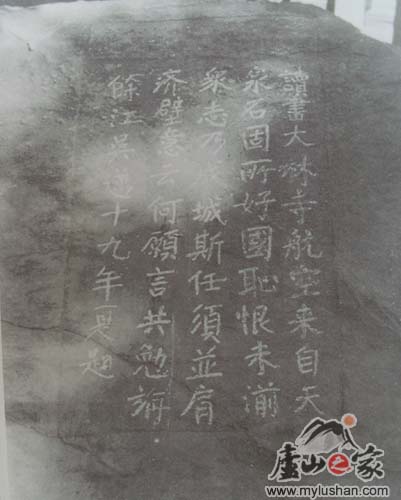 讀書大林寺航空来自天
泉石固所好國恥恨未湔
衆志乃城斯任須並肩
壁意云何願言共勉旃
餘江吳十九年夏題
廬山之家
www.mylushan.com